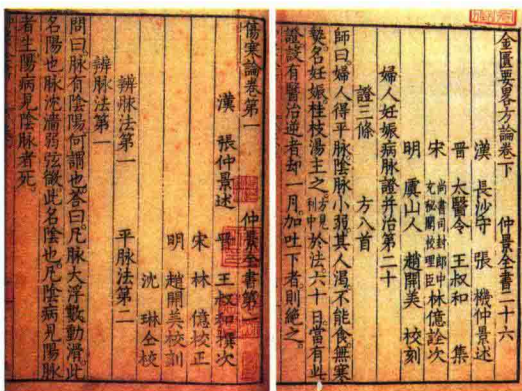 金匱要畧方論卷下 仲景全書二十六
漢 長沙守 張 機仲景述
晉 太醫令 王叔和 集
宋 尚書司封郎中充秘閣校理臣林億詮次
明 虞山人 趙開美 校刻
婦人妊娠病脉證并治第二十
證三條 方八首
師曰婦人得平脉陰脉小弱其人渴不能食無寒
熱名妊娠桂枝湯主之方見利中於法六十日當有此
證設有醫治逆者却一月加吐下者則絶之
傷寒論卷第一 仲景全書第
漢 張仲景述 晉 王叔和撰次
宋 林 億校正
明 趙開美校刻
沈 琳仝校
辨脉法第一 平脉法第二
辨脉法第一
問曰脉有陰陽何謂也答曰凡脉大浮數動滑此
名陽也脉沈濇弱弦微此名陰也凡陰病見陽脉
者生陽病見陰脉者死